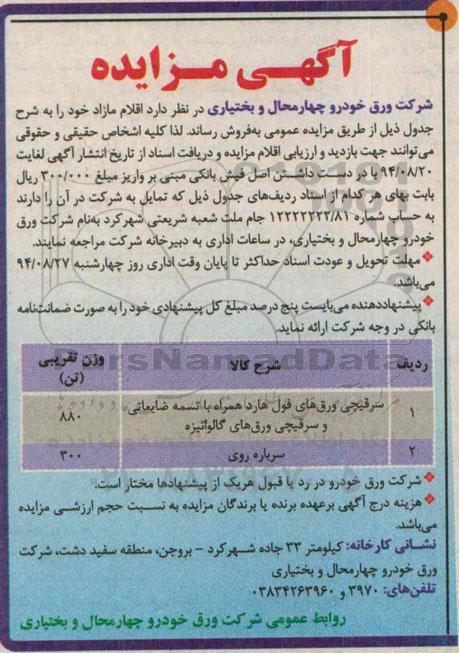 آگهـی مـزایده
شرکت ورق خودرو چهارمحال و بختیاری در نظر دارد اقلام مازاد خود را به شرح
جدول ذیل از طریق مزایده عمومی به‌فروش رساند. لذا کلیه اشخاص حقیقی و حقوقی
می‌توانند جهت بازدید و ارزیابی اقلام مزایده و دریافت اسناد از تاریخ انتشار آگهی لغایت
۹۴/۰۸/۲۰ با در دست داشتن اصل فیش بانکی مبنی بر واریز مبلغ ۳۰۰/۰۰۰ ریال
بابت بهای هر کدام از اسناد ردیف‌های جدول ذیل که تمایل به شرکت در آن را دارند
به حساب شماره ۱۲۲۲۲۲۲۲/۸۱ جام ملت شعبه شریعتی شهرکرد به‌نام شرکت ورق
خودرو چهارمحال و بختیاری، در ساعات اداری به دبیرخانه شرکت مراجعه نمایند.
❖مهلت تحویل و عودت اسناد حداکثر تا پایان وقت اداری روز چهارشنبه ۹۴/۰۸/۲۷
می‌باشد.
❖پیشنهاددهنده می‌بایست پنج درصد مبلغ کل پیشنهادی خود را به صورت ضمانت‌نامه
بانکی در وجه شرکت ارائه نماید.
ردیف شرح کالا وزن تقریبی (تن)
۱ سرقیچی ورق‌های فول هارد همراه با تسمه ضایعاتی
و سرقیچی ورق‌های گالوانیزه ۸۸۰
۲ سرباره روی ۳۰۰
❖شرکت ورق خودرو در رد یا قبول هریک از پیشنهادها مختار است.
❖هزینه درج آگهی برعهده برنده یا برندگان مزایده به نسبت حجم ارزشی مزایده
می‌باشد.
نشانی کارخانه: کیلومتر ۳۳ جاده شهرکرد - بروجن، منطقه سفید دشت، شرکت
ورق خودرو چهارمحال و بختیاری
تلفن‌های: ۳۹۷۰ و ۰۳۸۳۴۲۶۳۹۶۰
روابط عمومی شرکت ورق خودرو چهارمحال و بختیاری